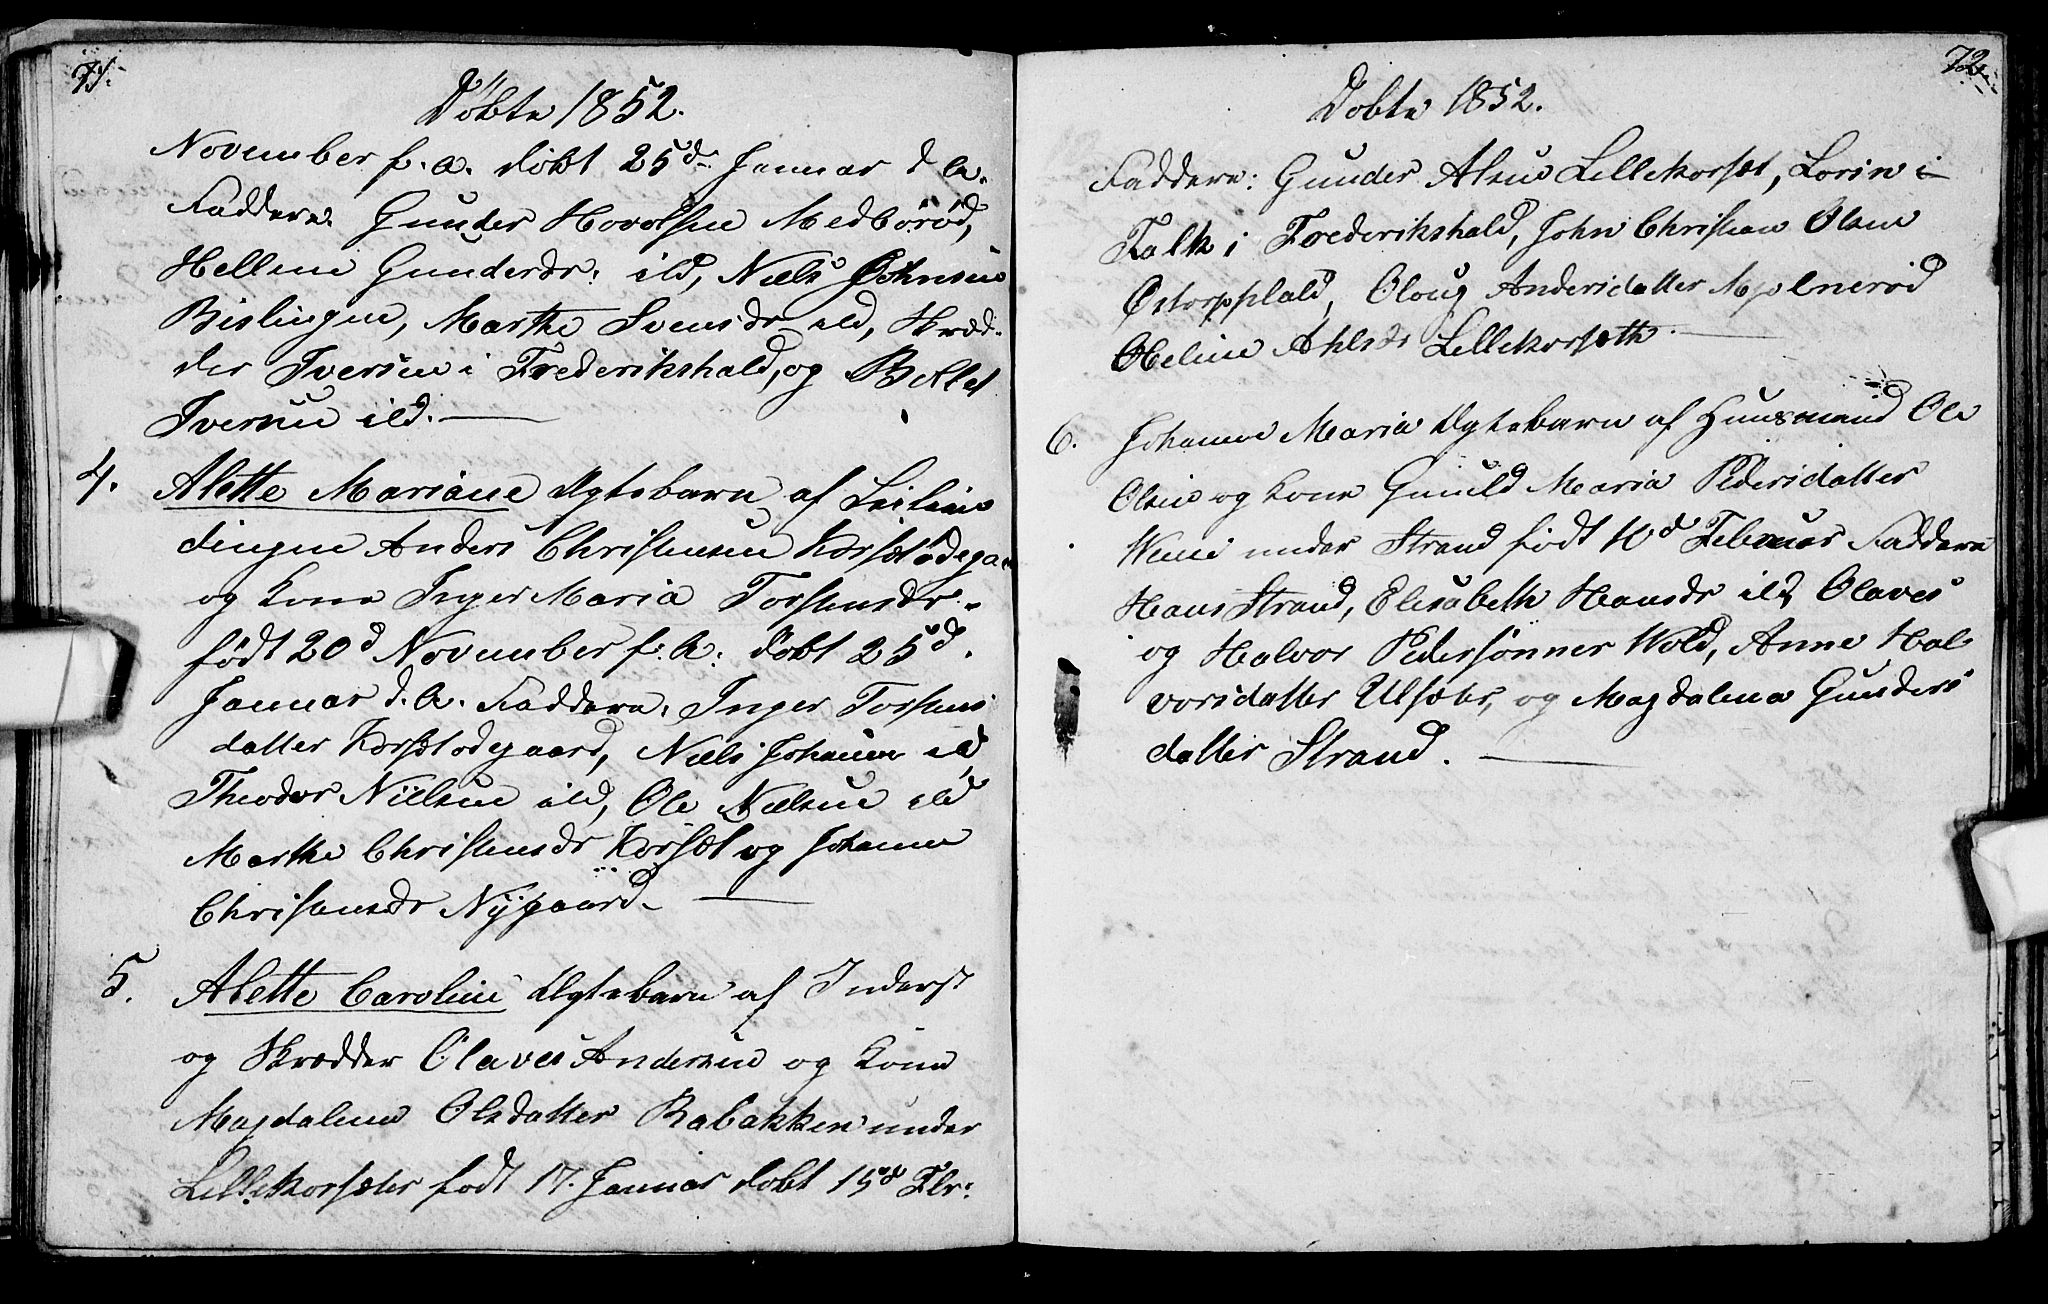 71.
Döbte 1852.
November f. a. döbt 25d Januar d. A.
Faddere. Gunder Hovelsen Medböröd,
Hellene Gundersdr: ild, Niels Johnsen
Bislingen, Marthe Svensdr ild, Skræd-
der Iversen i Frederikshald, og
Iversen ild.
4. Alette Mariane Ægtebarn af Leilæn
dingen Anders Christensen Korsetödegaard
og Kone Inger Maria Torstensdr.
födt 20d November f. A. döbt 25d.
Januar d. A. Faddere. Inger Torstens
datter Korsetödegaard, Niels Johanne ild
Theodor Nielsen ild, Ole Nielsen ild
Marthe Christensdr Korset og Johanne
Christensdr Nygaard.
5. Alette Caroline Ægtebarn af Inderst
og Skrædder Olaves Andersen og Kone
Magdalena Olsdatter Rabakken under
Lillekorsæter födt 17. Januar döbt 15d Fbr:
72.
Döbte 1852.
Faddere: Gunder Alsen Lillekorset, Lorin i
Falk i Frederikshald, John Christian Olsen
Oloug Andersdatter Mjölneröd
Oheline Ahlsdr Lillekorsæth.
6. Johanne Maria Ægtebarn af Huusmand Ole
Olsen og Kone Gunild Maria Pedersdatter
under Strand födt 10d Februar Faddere
Hans Strand, Elisabeth Hansdr ild, Olaves
og Halvor Pedersönner Wold, Anne Hal
vorsdatter Ulsæter, og Magdalena Gunders
datter Strand.